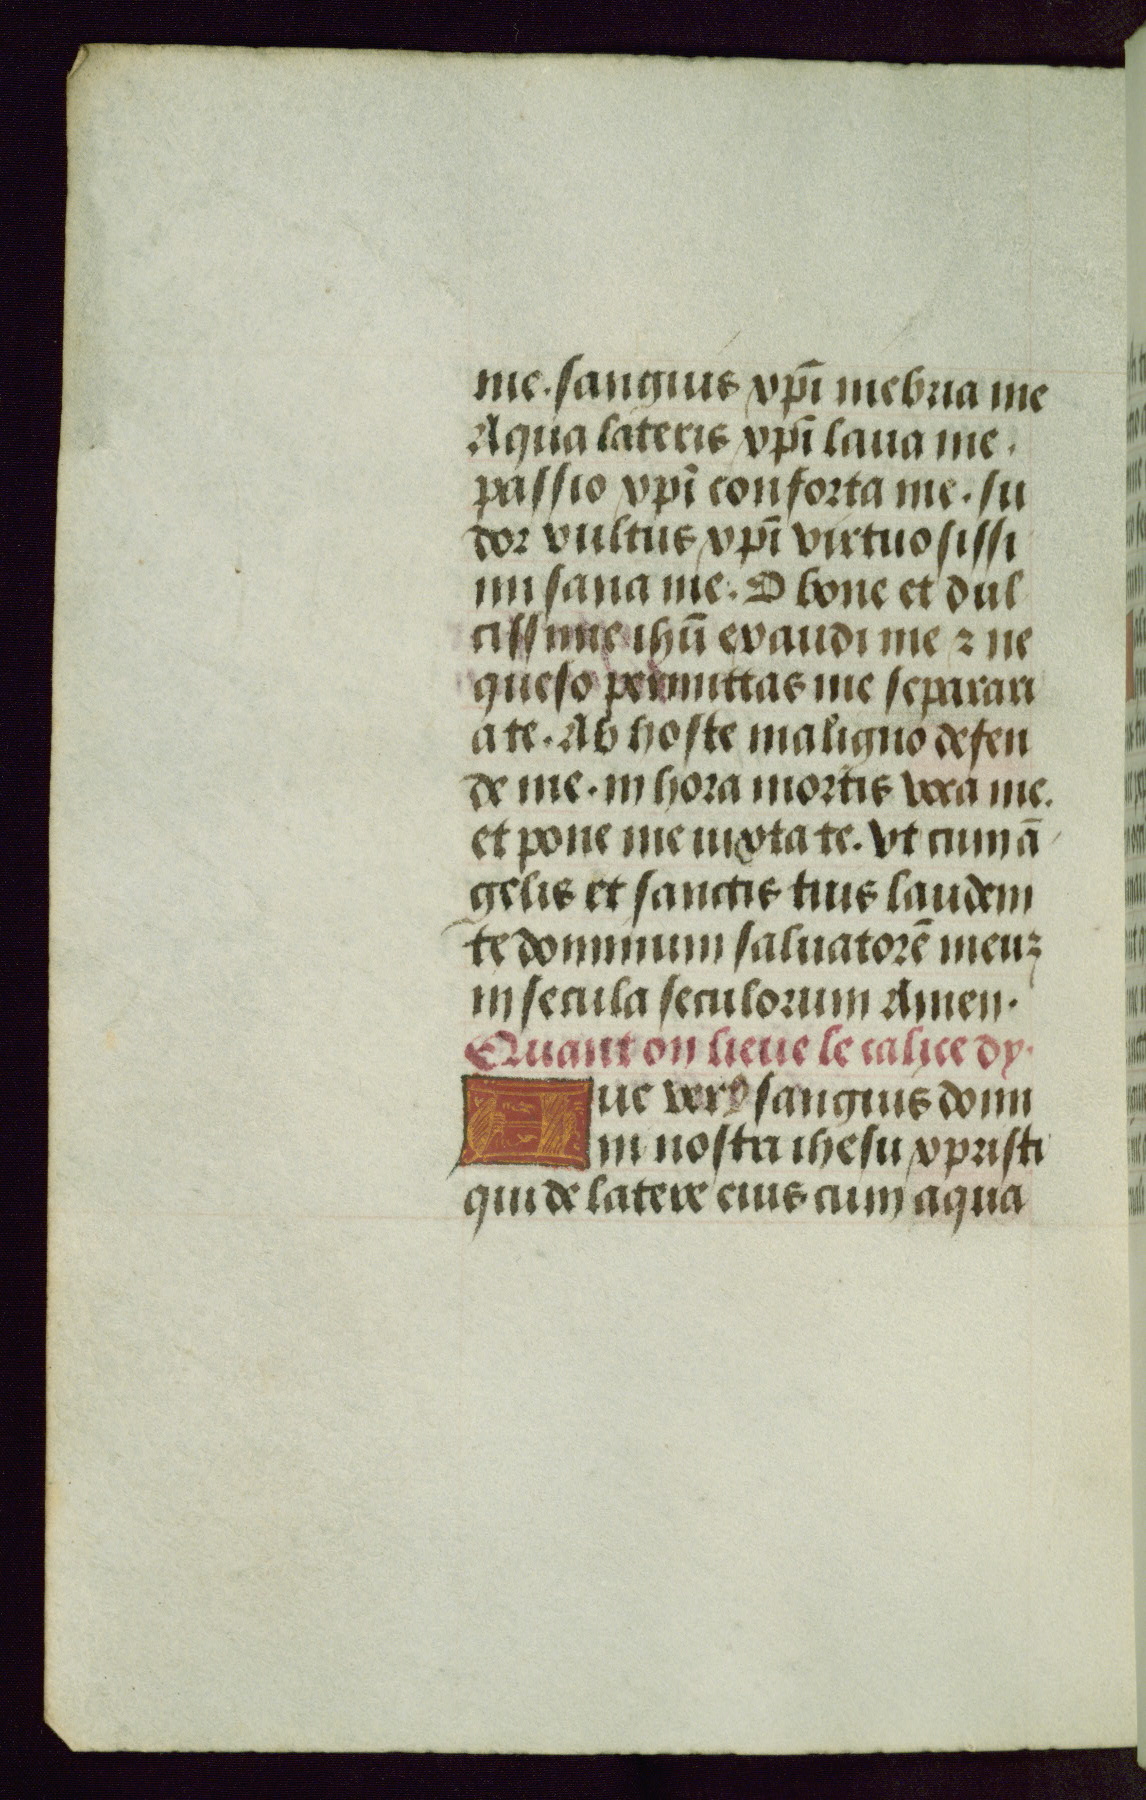 me. sanguis xpi̅ inebria me
Aqua lateris xpi̅ laua me.
passio xpi̅ conforta me. su
dor vultus xpi̅ virtuosissi
mi sana me. O bone et dul
cissime ihu̅ exaudi me ⁊ ne
queso permittas me separari
a te. Ab hoste maligno defen
de me. in hora mortis voca me.
et pone me iuxta te. Vt cum a̅
gelis et sanctis tuis laudem
te dominum saluatore̅ meuꝫ
in secula seculorum Amen.
Quant on lieue le calice dy.
Aue verꝰ sanguis domi
ni nostri ihesu xpristi
qui de latere eius cum aqua